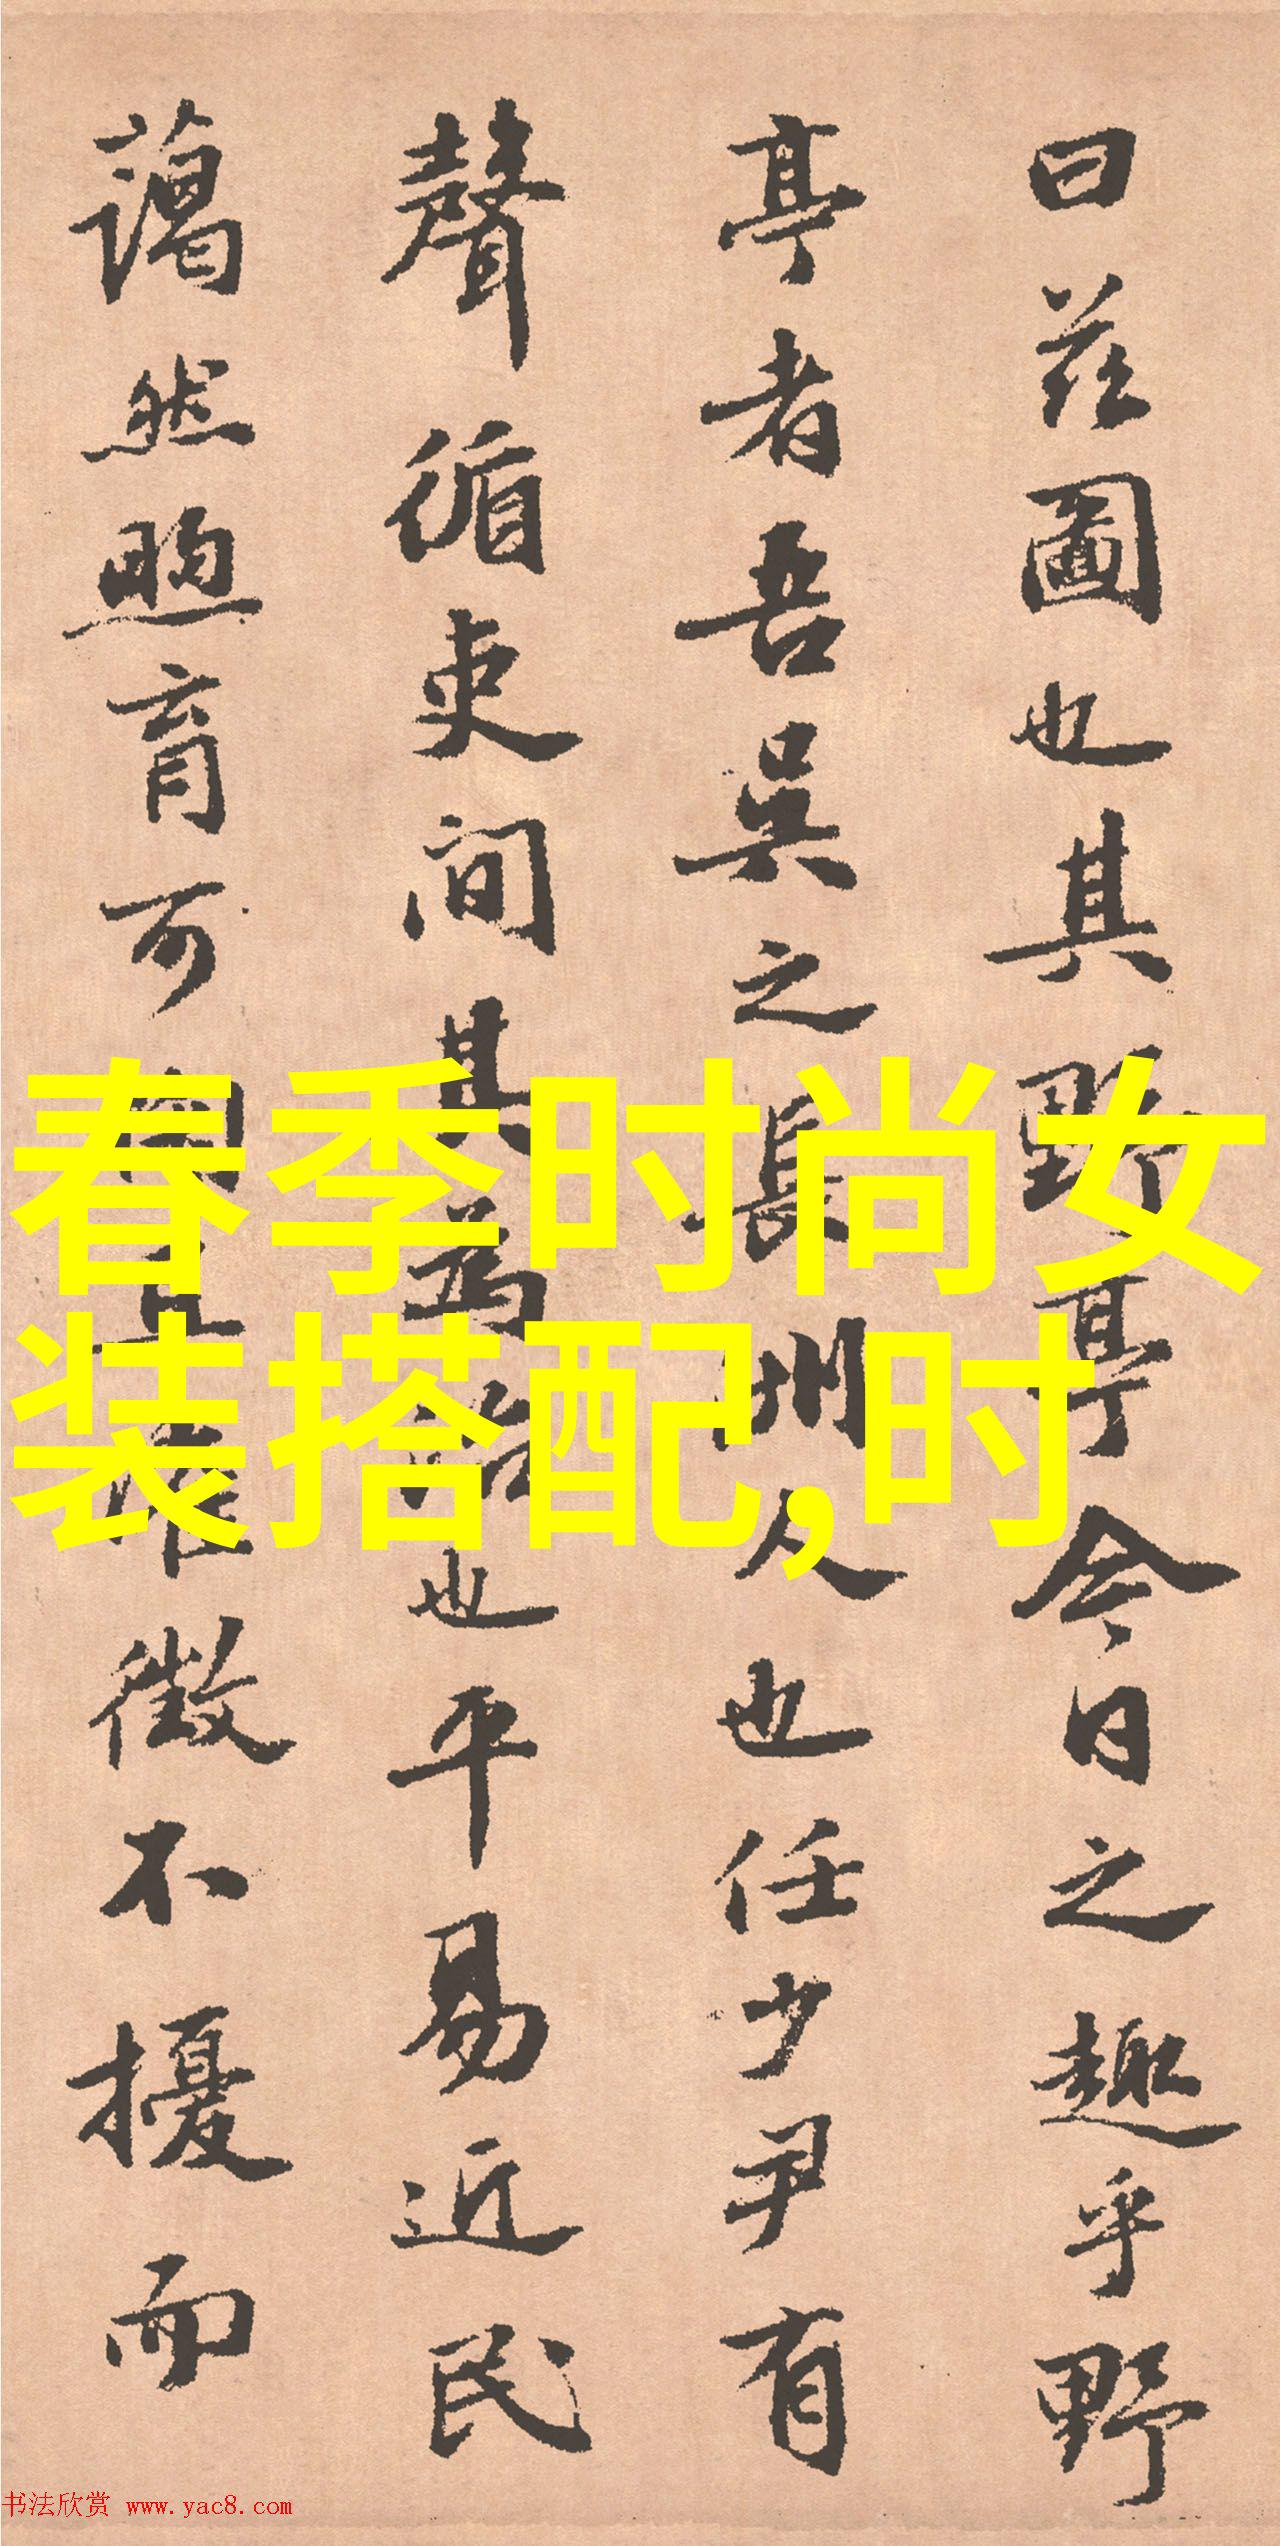 曰茲圖也其野亭今日之趣乎野
亭者吾吳之長洲人也任少尹有
聲循吏间其為治也平易近民
藹然煦育可
徵不擾而
春季时尚女
装搭配,时
书法欣赏 www.yac8.com